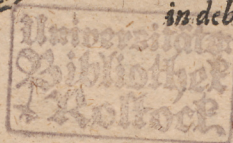 in deb
Universitäts
Bibliothek
Rostock